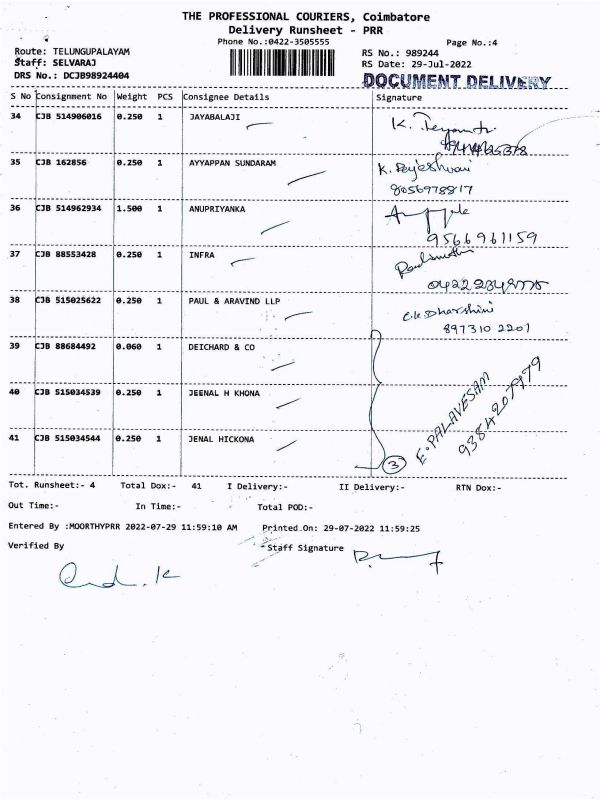 THE PROFESSIONAL COURIERS, Coimbatore
Delivery Runsheet - PRR
Phone No.:0422-3505555
Page No.:4
Route: TELUNGUPALAYAM
RS No.: 989244
Staff: SELVARAJ
RS Date: 29-Jul-2022
DRS No.: DCJB98924404
DOCUMENT DELIVERY
S No Consignment No Weight PCS Consignee Details Signature
34 CJB 514906016 0.250 1 JAYABALAJI
35 CJB 162856 0.250 1 AYYAPPAN SUNDARAM K. Rajeshwari
8056978817
36 CJB 514962934 1.500 1 ANUPRIYANKA
9566961159
37 CJB 88553428 0.250 1 INFRA
38 CJB 515025622 0.250 1 PAUL & ARAVIND LLP C.K Dharshini
897310 2201
39 CJB 88684492 0.060 1 DEICHARD & CO
40 CJB 515034539 0.250 1 JEENAL H KHONA
E. PALAVESAM
9384207979
41 CJB 515034544 0.250 1 JENAL HICKONA
3
Tot. Runsheet:- 4 Total Dox:- 41 I Delivery:- II Delivery:- RTN Dox:-
Out Time:- In Time:- Total POD:-
Entered By :MOORTHYPRR 2022-07-29 11:59:10 AM Printed.On: 29-07-2022 11:59:25
Verified By Staff Signature